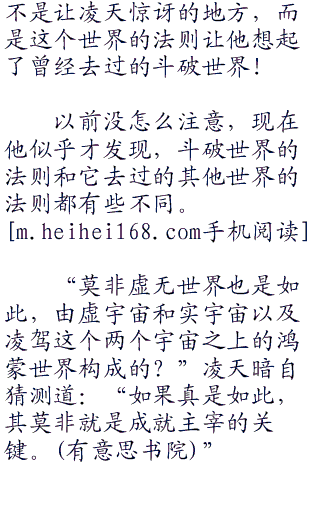 不是让凌天惊讶的地方，而
是这个世界的法则让他想起
了曾经去过的斗破世界！
以前没怎么注意，现在
他似乎才发现，斗破世界的
法则和它去过的其他世界的
法则都有些不同。
[m.heihei168.com手机阅读]
“莫非虚无世界也是如
此，由虚宇宙和实宇宙以及
凌驾这个两个宇宙之上的鸿
蒙世界构成的？”凌天暗自
猜测道：“如果真是如此，
其莫非就是成就主宰的关
键。(有意思书院)”